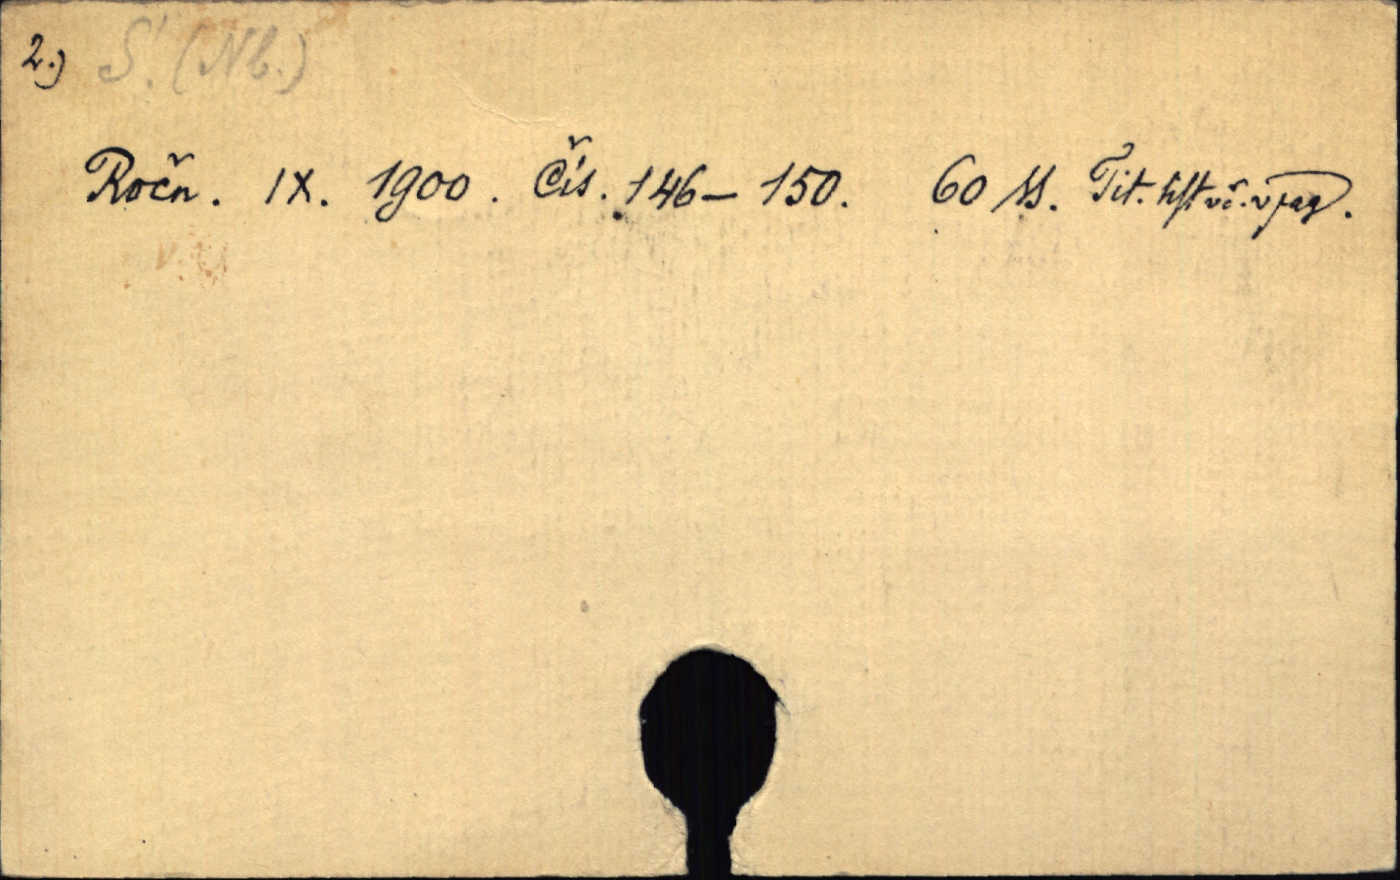 2.) S. (Nb.)
Ročn. IX. 1900. Čís. 146–150. 60 SS. Tit. list vč. v pag.